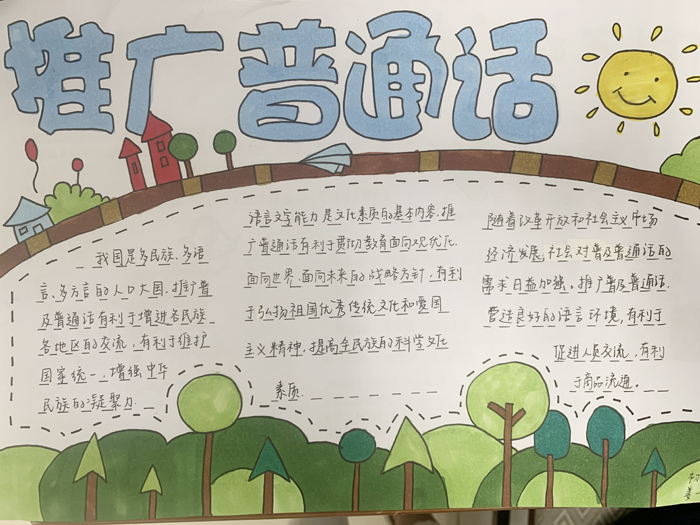 推广普通话
我国是多民族、多语
言、多方言的人口大国,推广普
及普通话有利于增进各民族、
各地区的交流,有利于维护
国家统一,增强中华
民族的凝聚力.
语言文字能力是文化素质的基本内容,推
广普通话有利于贯彻教育面向现代化,
面向世界、面向未来的战略方针,有利
于弘扬祖国优秀传统文化和爱国
主义精神,提高全民族的科学文化
素质.
随着改革开放和社会主义市场
经济发展,社会对普及普通话的
需求日益加强。推广普及普通话.
营造良好的语言环境,有利于
促进人员交流,有利
于商品流通。
初
姜